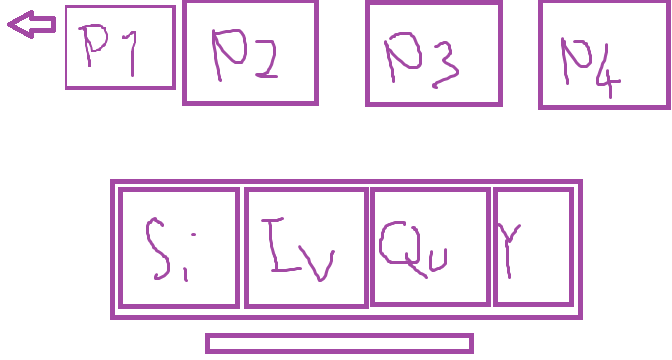 P1 P2 P3 P4
Si Iv Qu Y